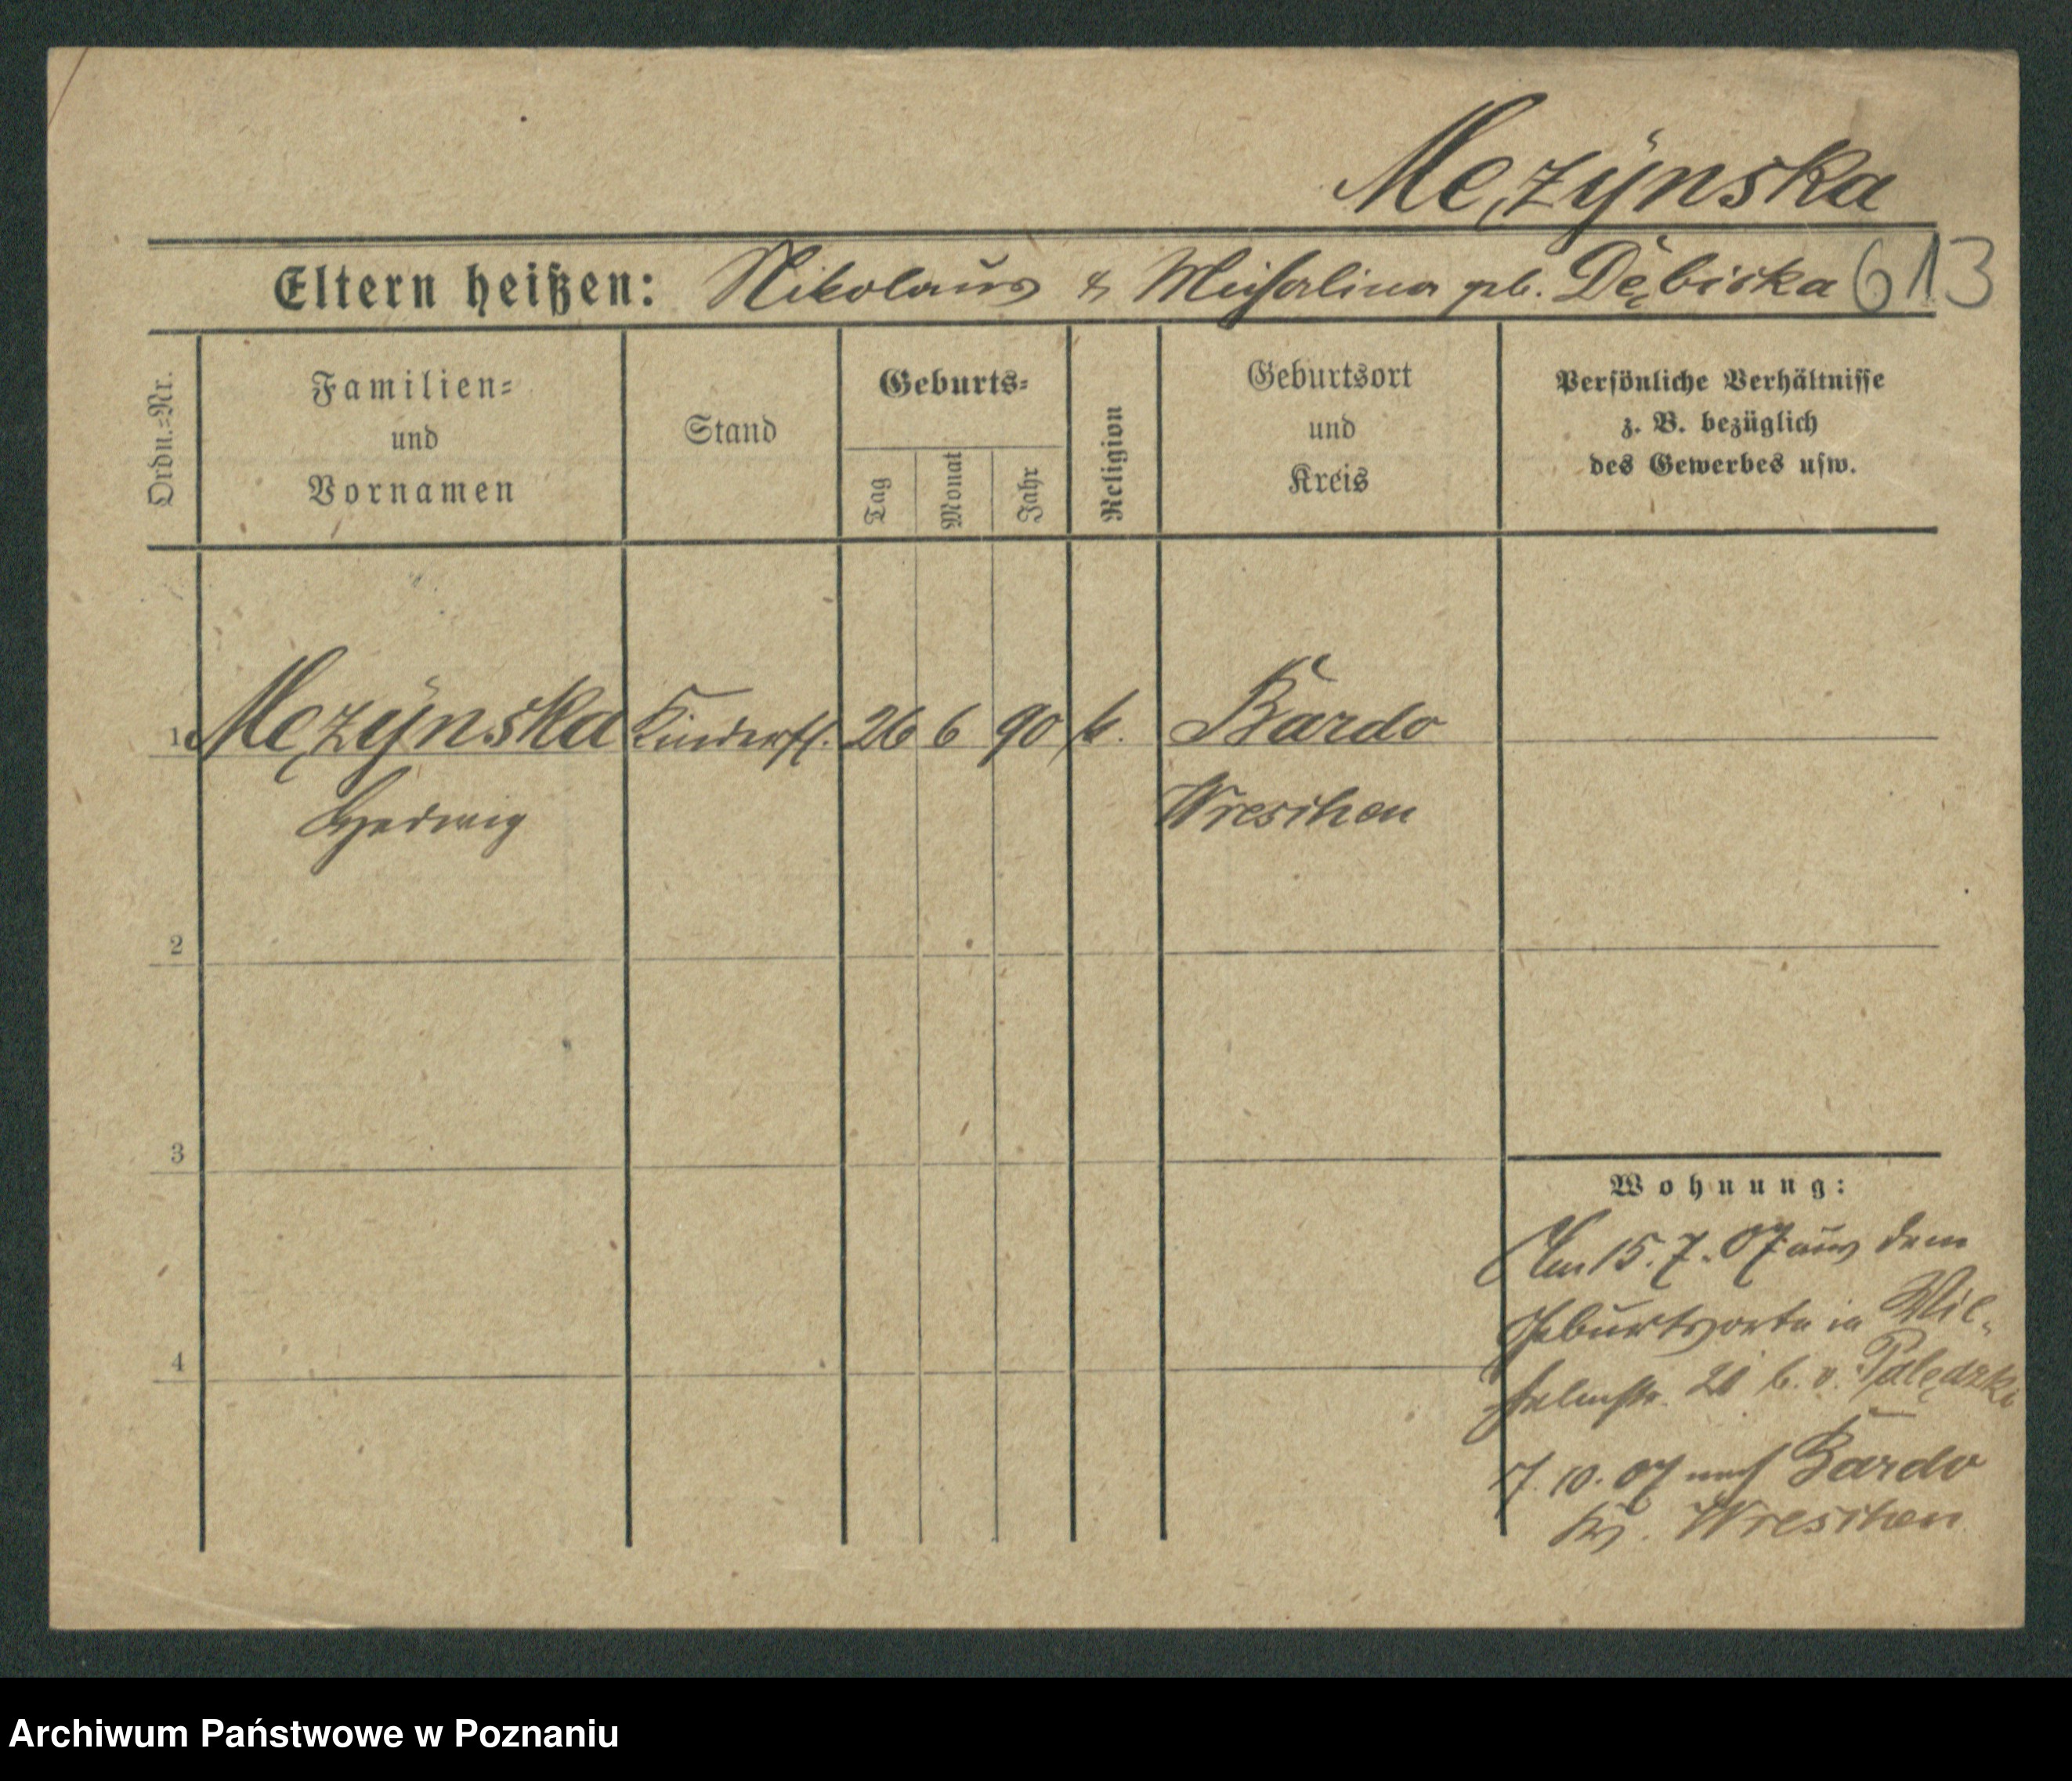 Mężynska
Eltern heißen: Nikolaus & Michalina geb. Dębicka 613
Ordn.=Nr.
Familien=
und
Vornamen
Stand
Geburts=
Tag
Monat
Jahr
Religion
Geburtsort
und
Kreis
Persönliche Verhältnisse
z. B. bezüglich
des Gewerbes usw.
1 Mężynska Kinderfl. 26 6 90 k. Bardo
Hedwig Wreschen
2
3
4
Wohnung:
Am 15.7.07 aus dem
Geburtsorte in Wil-
helmstr. 21 b. v. Palędzki
7.10.07 nach Bardo
Kr. Wreschen
Archiwum Państwowe w Poznaniu